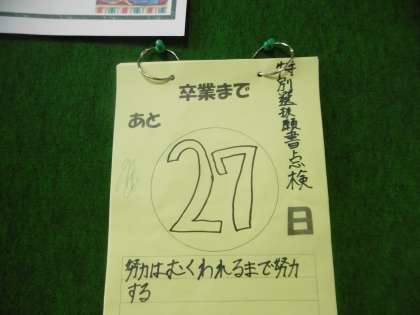 卒業まで
あと
27
日
特別選抜願書点検
努力はむくわれるまで努力
する